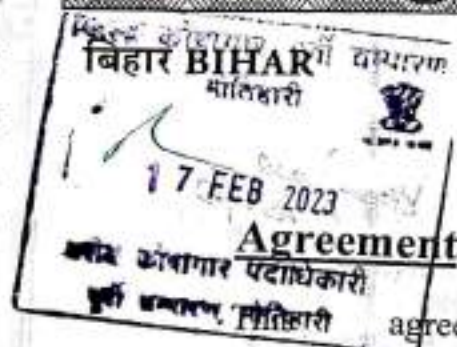 बिहार BIHAR
मोतिहारी
17 FEB 2023
Agreement
कोषागार पदाधिकारी
पूर्वी चम्पारण, मोतिहारी
agree